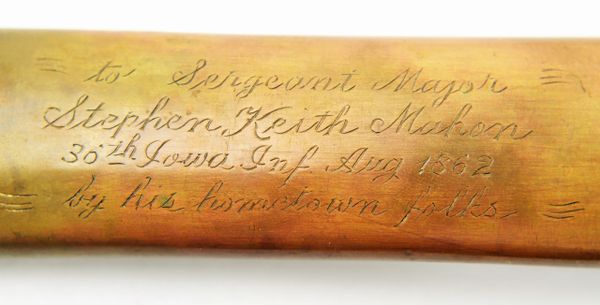 to Sergeant Major
Stephen Keith Mahon
30th Iowa Inf. Aug 1862
by his hometown folks